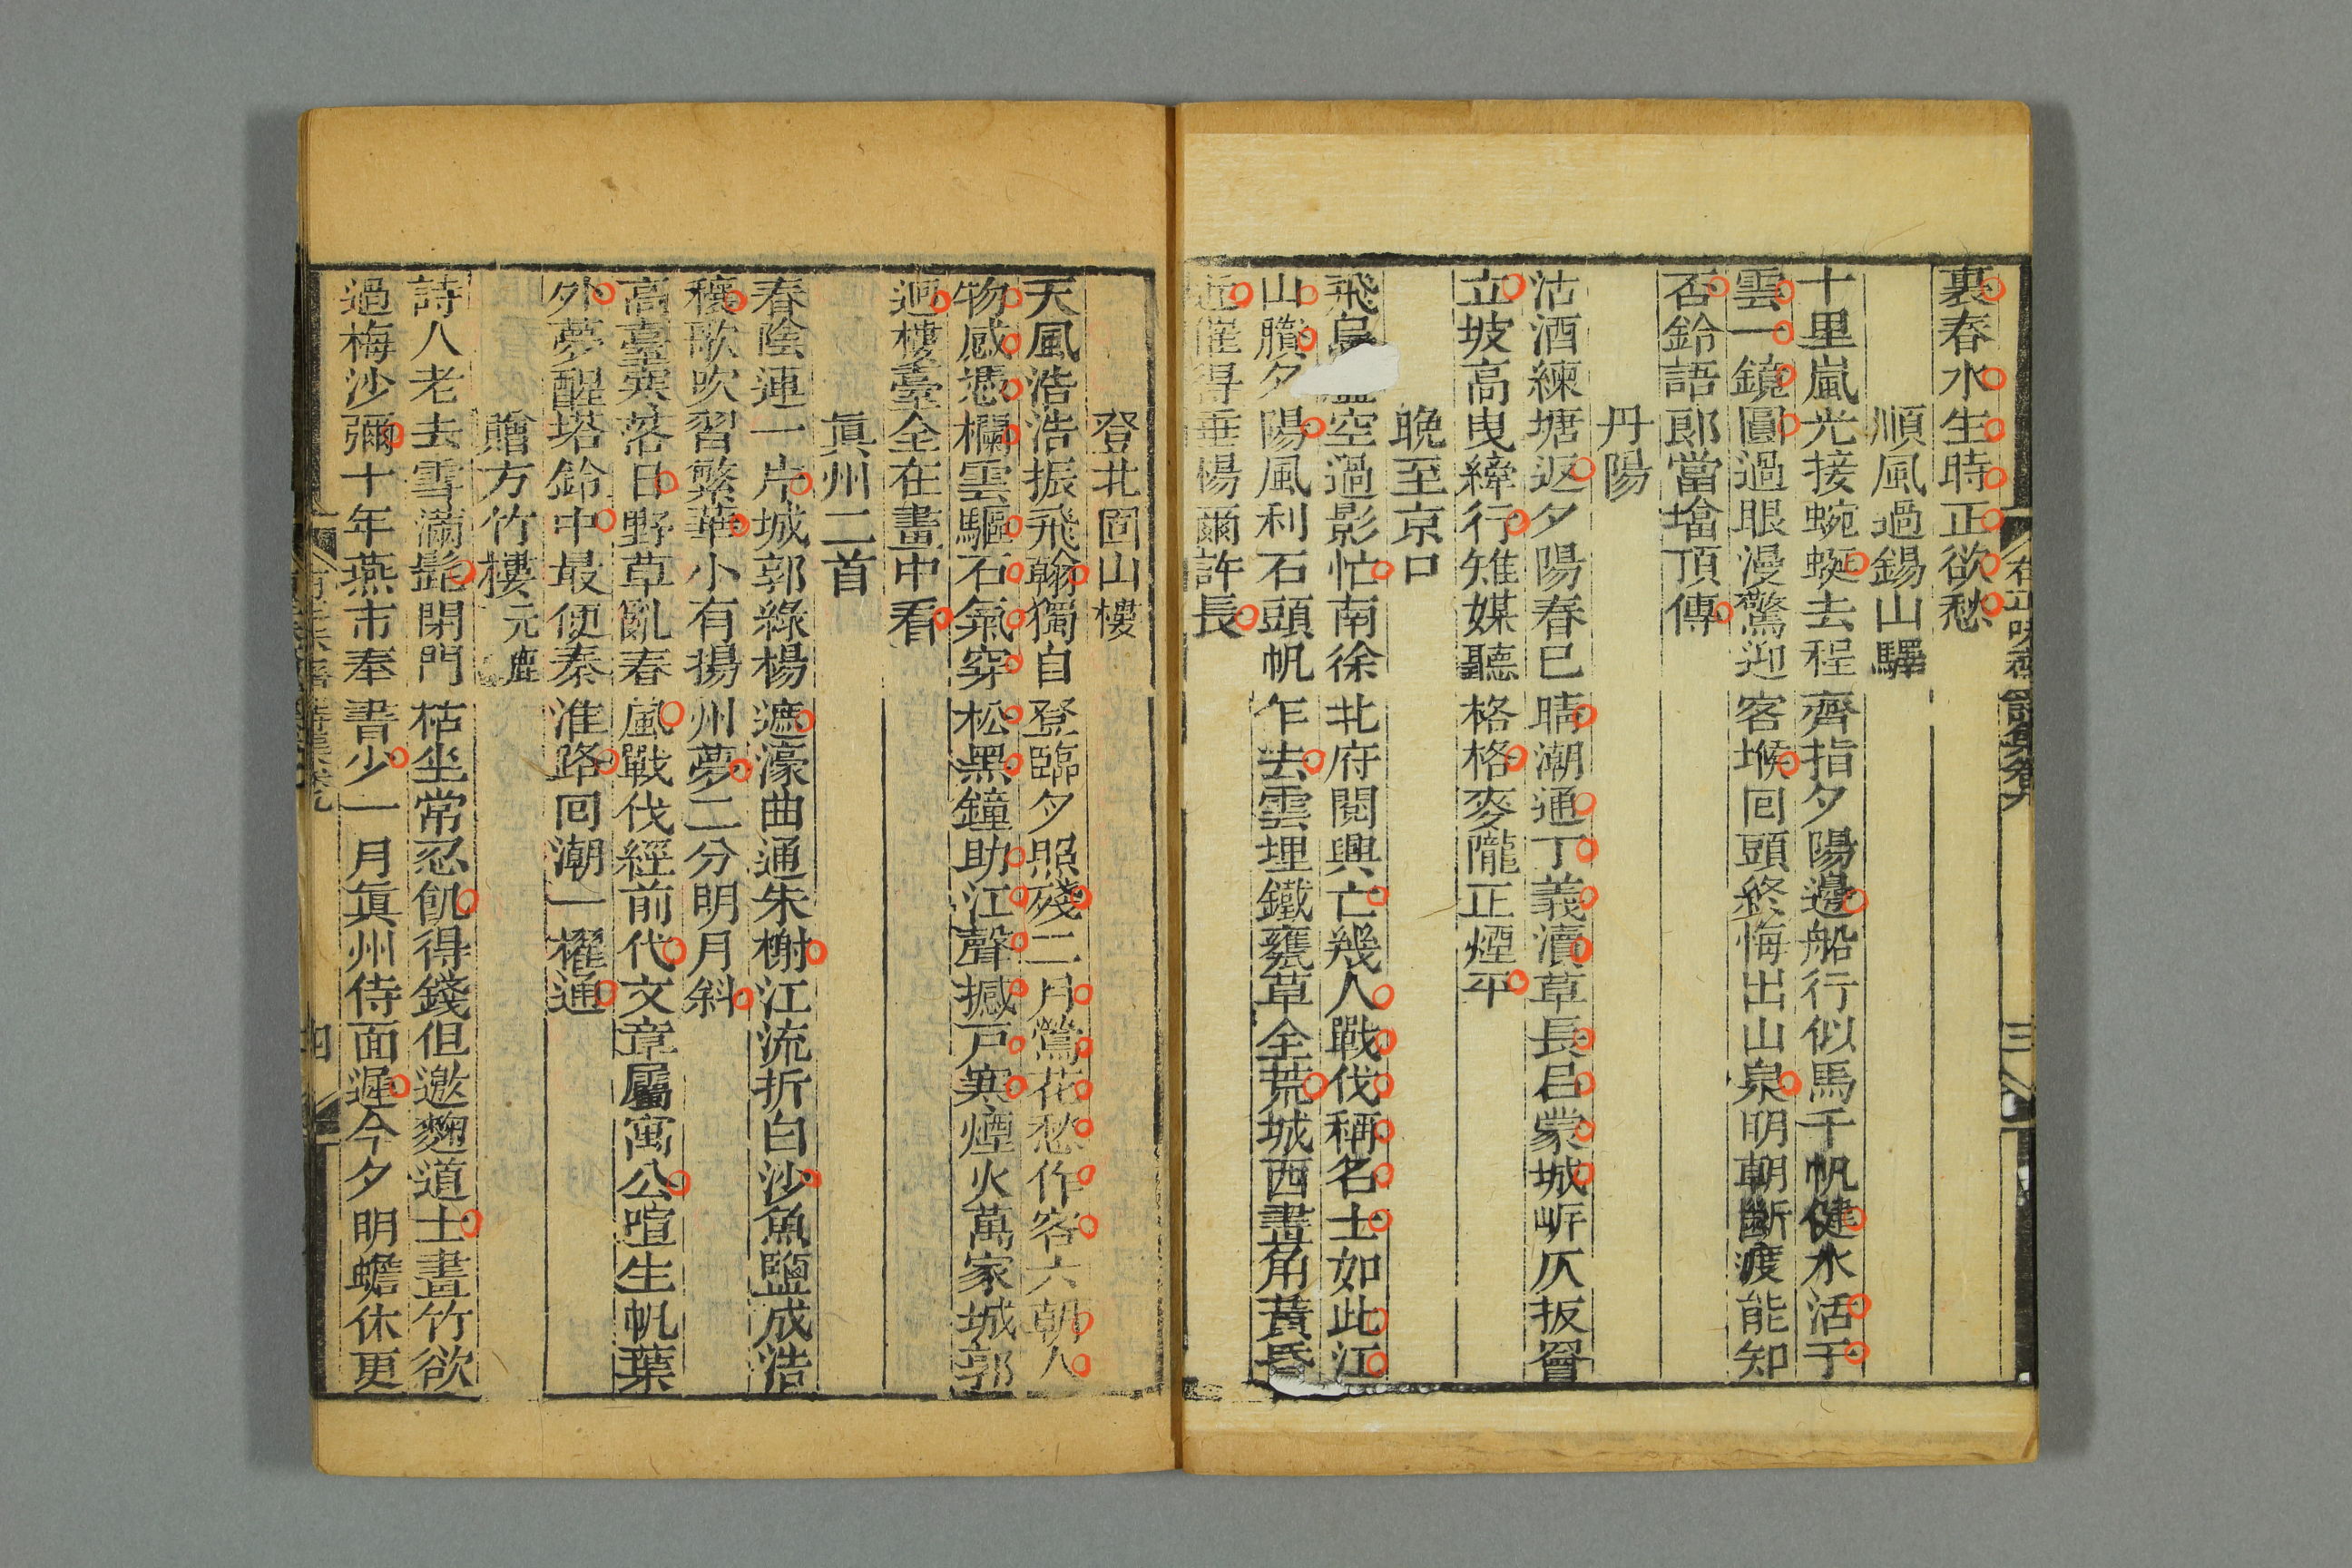 裏春水生時正欲愁
順風過錫山驛
十里嵐光接蜿蜒去程齊指夕陽邊船行似馬千帆健水活于
雲一鏡圓過眼漫驚迎客堠回頭終悔出山泉明朝斷渡能知
否鈴語郎當㙮頂傳
丹陽
沽酒練塘返夕陽春巳晴潮通丁義瀆草長呂蒙城岍仄扳罾
立坡高曳縴行雉媒聽格格麥隴正煙平
晚至京口
飛鳥空過影忙南徐北府閱興亡幾人戰伐稱名士如此江
山賸夕陽風利石頭帆乍去雲埋鐵甕草全荒城西畫角黃昏
近催得垂楊爾許長
三
登北固山樓
天風浩浩振飛翰獨自登臨夕照殘二月鶯花愁作客六朝人
物感憑欄雲驅石氣穿松黑鐘助江聲撼戸寒煙火萬家城郭
迥樓臺全在畫中看
眞州二首
春陰連一片城郭綠楊遮濠曲通朱榭江流折白沙魚鹽成浩
穰歌吹習繁華小有揚州夢二分明月斜
高臺寒落日野草亂春風戰伐經前代文章屬寓公喧生帆葉
外夢醒塔鈴中最便秦淮路回潮一櫂通
贈方竹樓元鹿
詩人老去雪滿髭閉門枯坐常忍飢得錢但邀麴道士畫竹欲
過梅沙彌十年燕市奉書少一月眞州侍面遲今夕明蟾休更
四